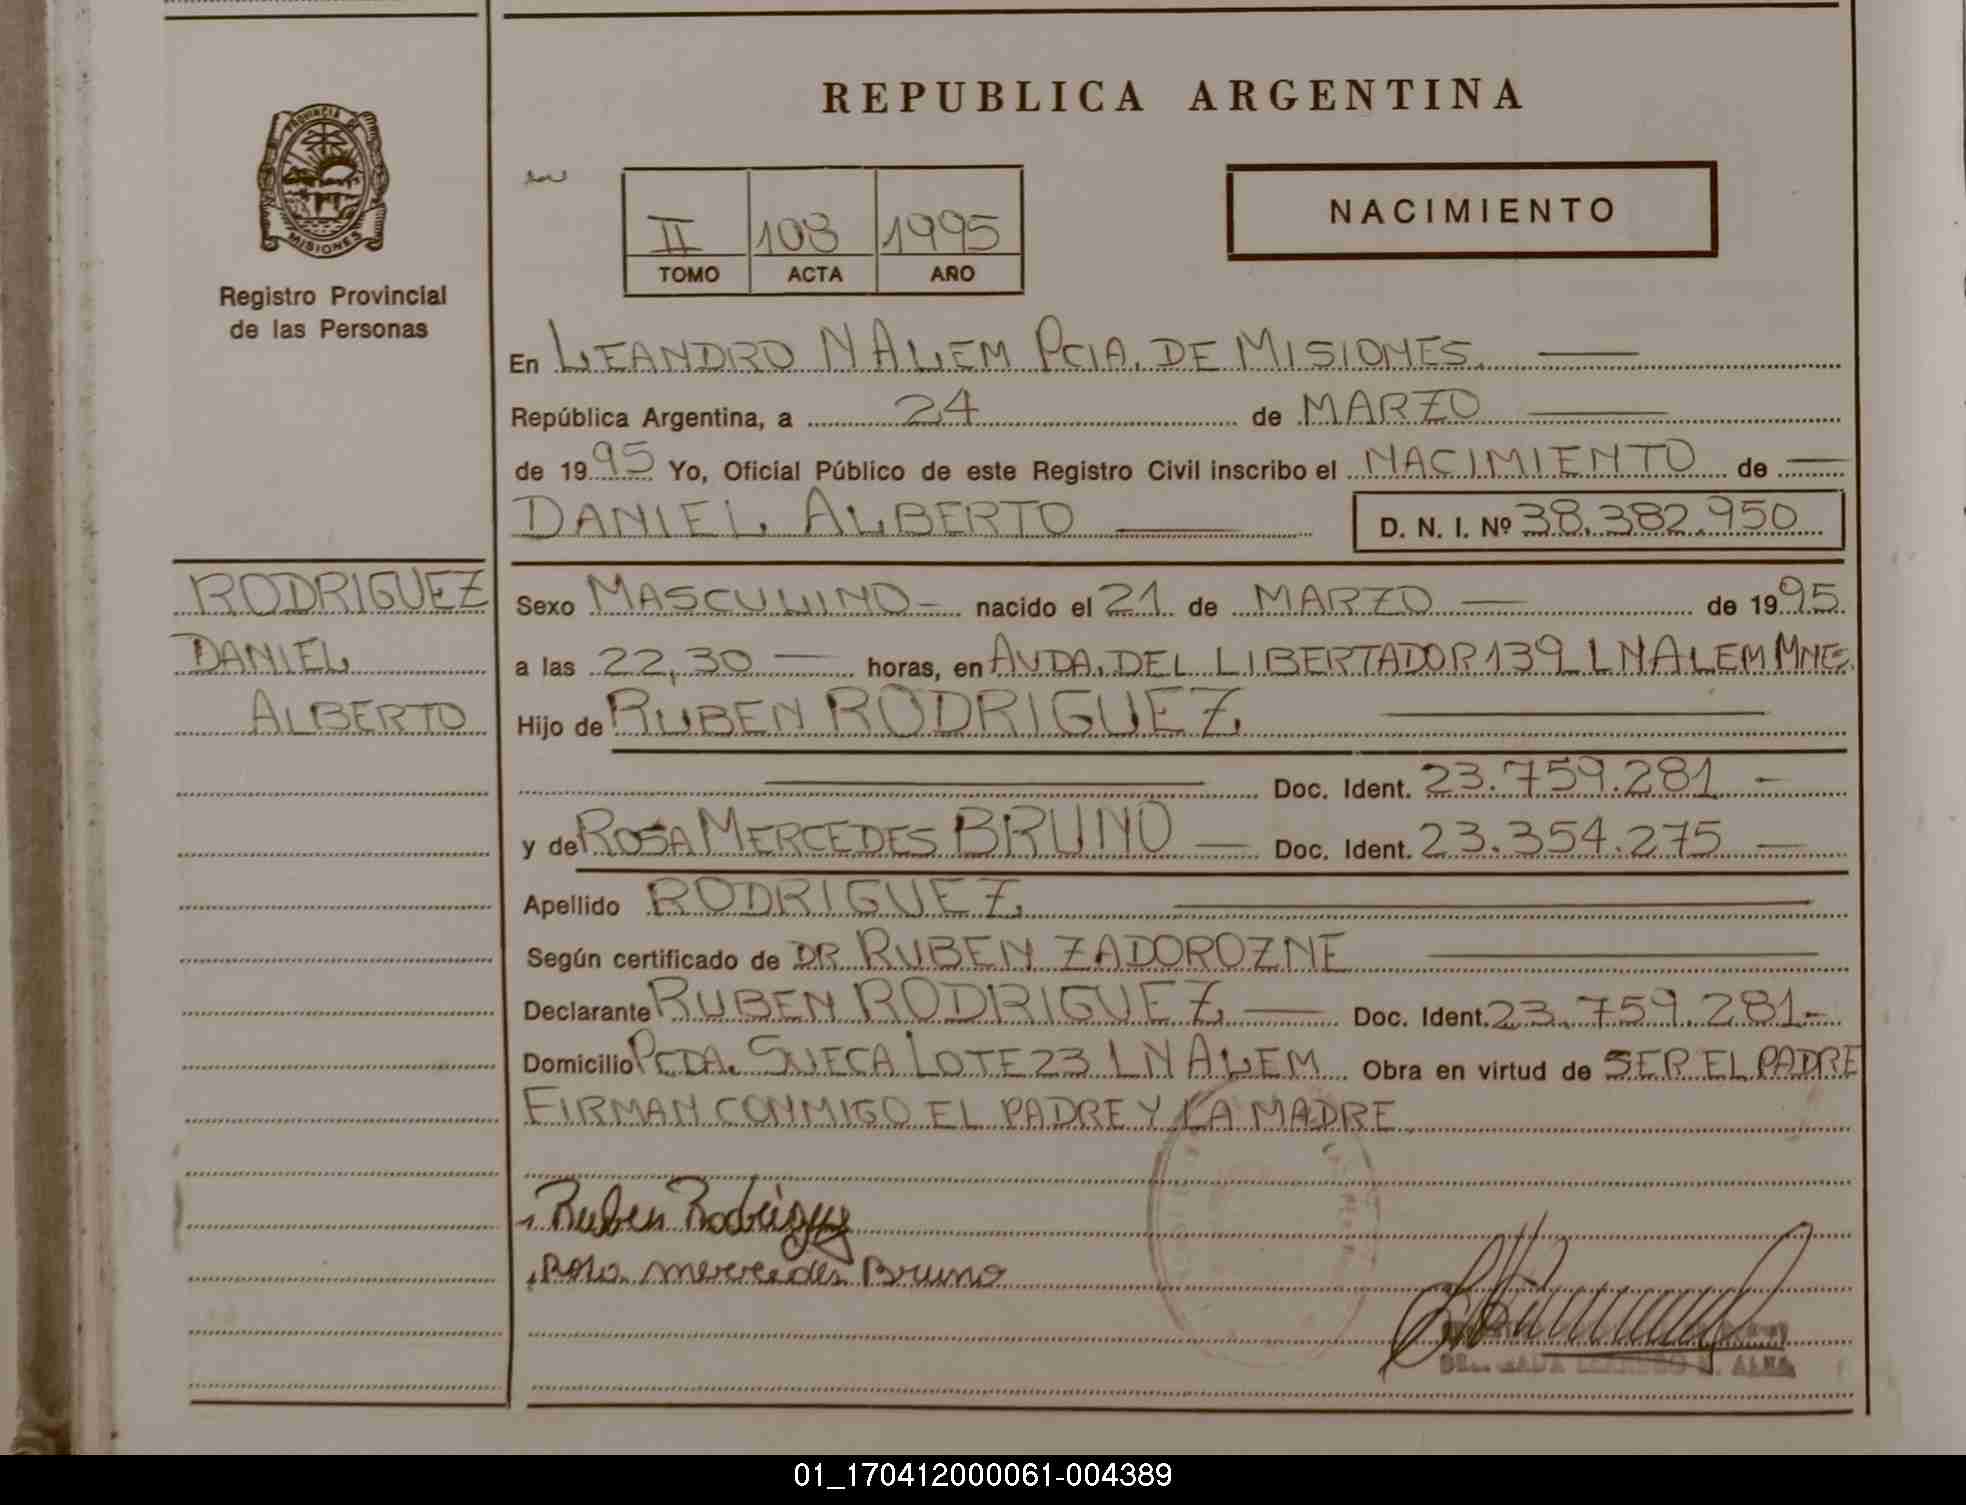 REPUBLICA ARGENTINA
PROVINCIA DE
MISIONES
Registro Provincial
de las Personas
II 108 1995
TOMO ACTA AÑO
NACIMIENTO
En LEANDRO N ALEM PCIA. DE MISIONES.
República Argentina, a 24 de MARZO
de 1995 Yo, Oficial Público de este Registro Civil inscribo el NACIMIENTO de
DANIEL ALBERTO D. N. I. Nº 38.382.950
RODRIGUEZ
DANIEL
ALBERTO
Sexo MASCULINO - nacido el 21 de MARZO de 1995
a las 22,30 horas, en AVDA. DEL LIBERTADOR 139 L N ALEM MNES
Hijo de RUBEN RODRIGUEZ
Doc. Ident. 23.759.281 -
y de ROSA MERCEDES BRUNO Doc. Ident. 23.354.275
Apellido RODRIGUEZ
Según certificado de DR RUBEN ZADOROZNE
Declarante RUBEN RODRIGUEZ Doc. Ident. 23.759.281-
Domicilio PCDA. SUECA LOTE 23 L N ALEM Obra en virtud de SER EL PADRE
FIRMAN CONMIGO EL PADRE Y LA MADRE
Ruben Rodriguez
Rosa mercedes Bruno
01_170412000061-004389